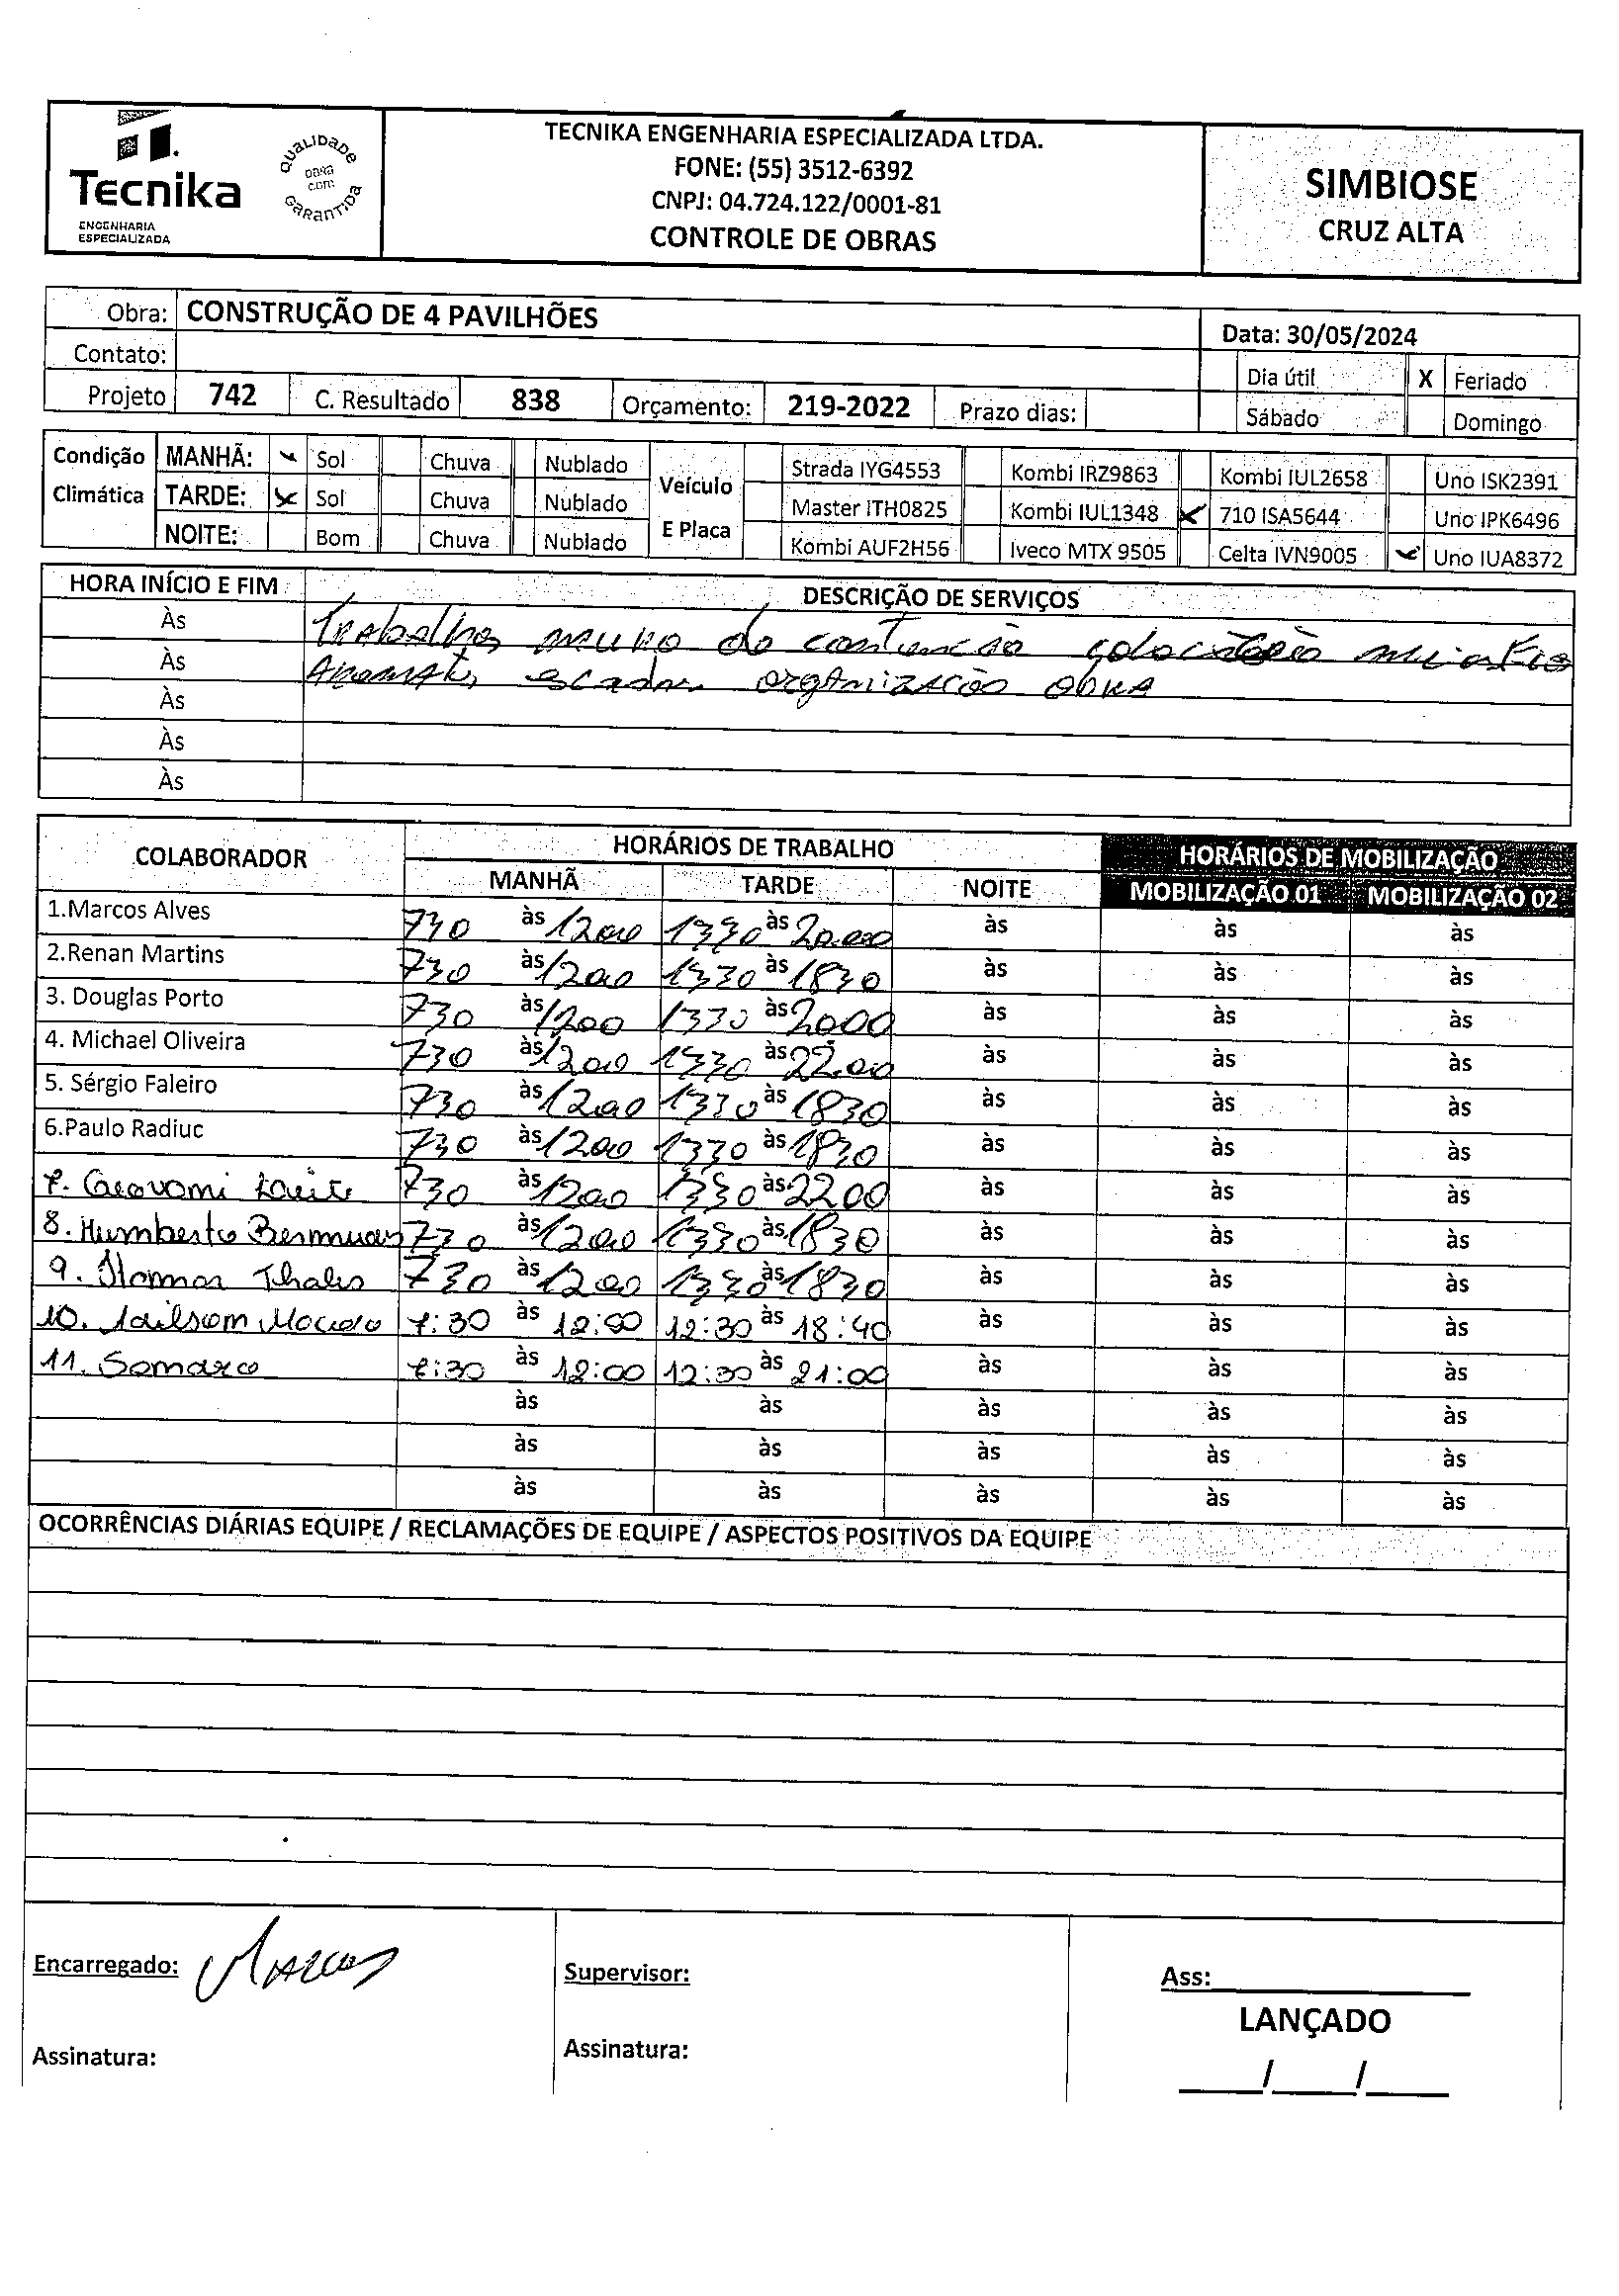 Tecnika
ENGENHARIA
ESPECIALIZADA
QUALIDADE
GARANTIDA
TECNIKA ENGENHARIA ESPECIALIZADA LTDA.
FONE: (55) 3512-6392
CNPJ: 04.724.122/0001-81
CONTROLE DE OBRAS
SIMBIOSE
CRUZ ALTA
Obra: CONSTRUÇÃO DE 4 PAVILHÕES
Data: 30/05/2024
Contato:
Dia útil X Feriado
Projeto 742 C. Resultado 838 Orçamento: 219-2022 Prazo dias:
Sábado Domingo
Condição Climática
MANHÃ: Sol Chuva Nublado
TARDE: Sol Chuva Nublado
NOITE: Bom Chuva Nublado
Veículo E Placa
Strada IYG4553 Kombi IRZ9863 Kombi IUL2658 Uno ISK2391
Master ITH0825 Kombi IUL1348 X 710 ISA5644 Uno IPK6496
Kombi AUF2H56 Iveco MTX 9505 Celta IVN9005 Uno IUA8372
HORA INÍCIO E FIM DESCRIÇÃO DE SERVIÇOS
Às Trabalhos muro de contencão colocação
Às escadas organização obra
Às
Às
Às
COLABORADOR HORÁRIOS DE TRABALHO HORÁRIOS DE MOBILIZAÇÃO
MANHÃ TARDE NOITE MOBILIZAÇÃO 01 MOBILIZAÇÃO 02
1.Marcos Alves 730 às 1200 1330 às 20.00 às às às
2.Renan Martins 730 às 1200 1330 às 1830 às às às
3. Douglas Porto 730 às 1200 1330 às 2000 às às às
4. Michael Oliveira 730 às 1200 1330 às 22.00 às às às
5. Sérgio Faleiro 730 às 1200 1330 às 1830 às às às
6.Paulo Radiuc 730 às 1200 1330 às 1830 às às às
7. Geovani Leite 730 às 1200 1330 às 2200 às às às
8. Humberto 730 às 1200 1330 às 1830 às às às
9. Thales 730 às 1200 1330 às 1830 às às às
10. 7:30 às 12:00 12:30 às 18:40 às às às
11. 7:30 às 12:00 12:30 às 21:00 às às às
às às às às às
às às às às às
às às às às às
OCORRÊNCIAS DIÁRIAS EQUIPE / RECLAMAÇÕES DE EQUIPE / ASPECTOS POSITIVOS DA EQUIPE
Encarregado: Marcos
Supervisor:
Ass:
LANÇADO
Assinatura:
Assinatura:
/ /